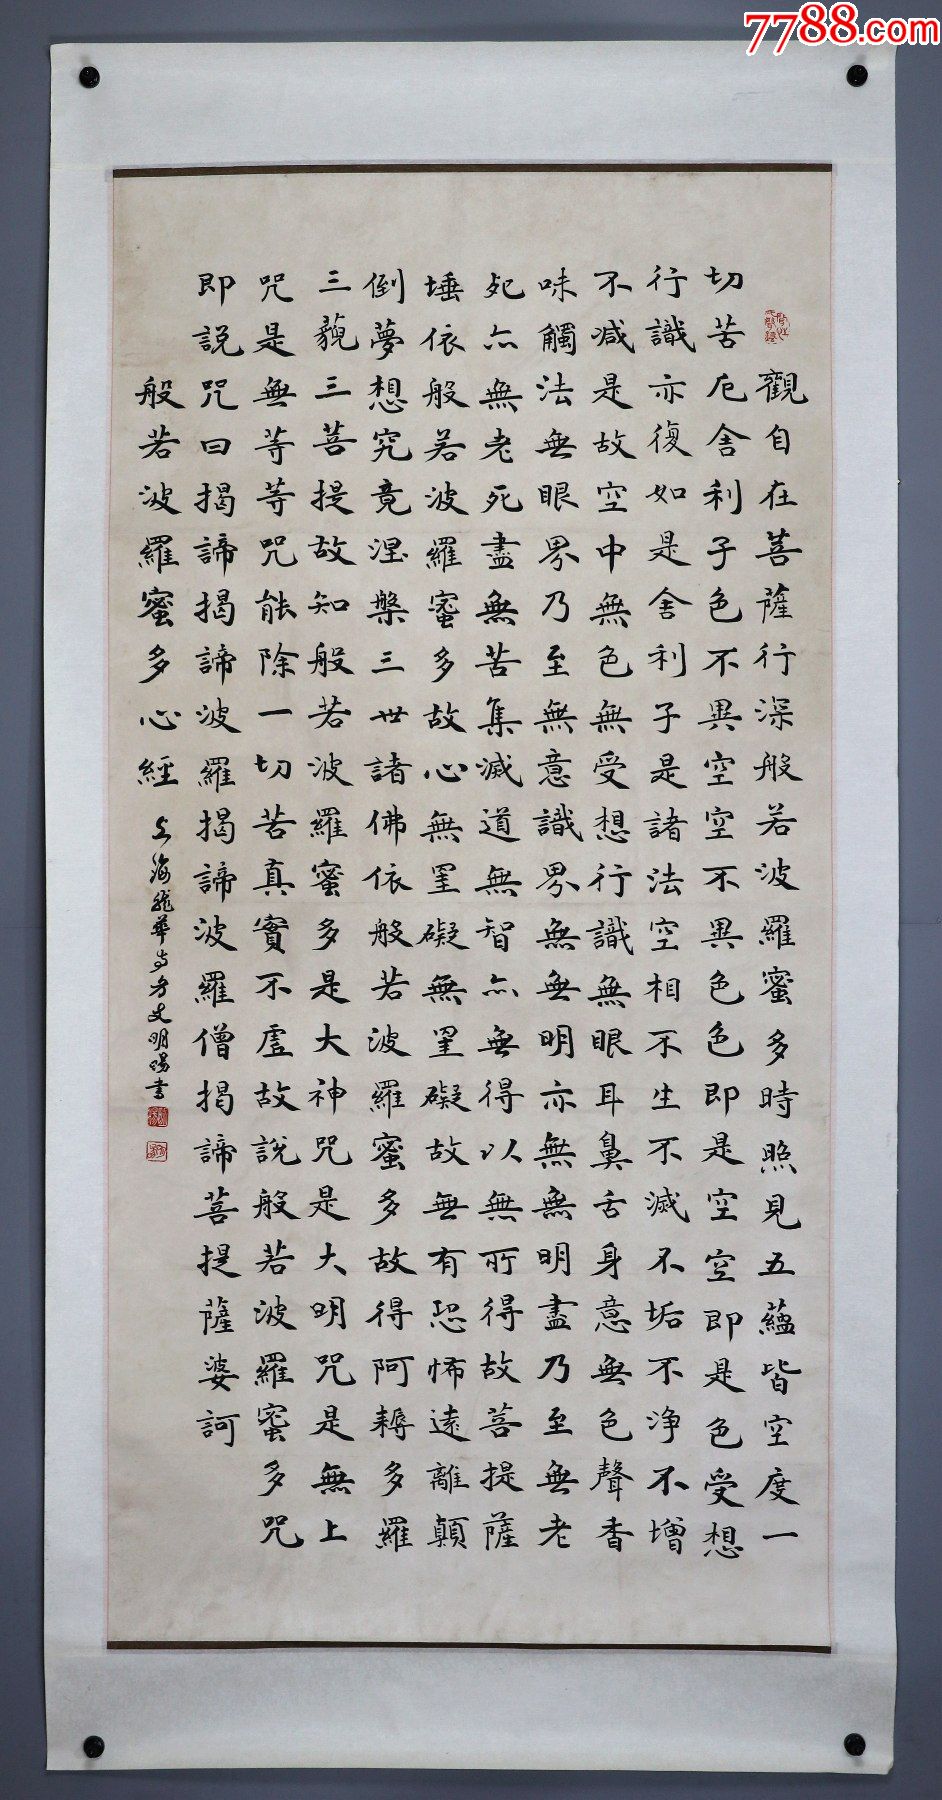 7788.com
觀自在菩薩行深般若波羅蜜多時照見五蘊皆空度一
切苦厄舍利子色不異空空不異色色即是空空即是色受想
行識亦復如是舍利子是諸法空相不生不滅不垢不净不增
不減是故空中無色無受想行識無眼耳鼻舌身意無色聲香
味觸法無眼界乃至無意識界無無明亦無無明盡乃至無老
死亦無老死盡無苦集滅道無智亦無得以無所得故菩提薩
埵依般若波羅蜜多故心無罣礙無罣礙故無有恐怖遠離顛
倒夢想究竟涅槃三世諸佛依般若波羅蜜多故得阿耨多羅
三藐三菩提故知般若波羅蜜多是大神咒是大明咒是無上
咒是無等等咒能除一切苦真實不虛故說般若波羅蜜多咒
即說咒曰揭諦揭諦波羅揭諦波羅僧揭諦菩提薩婆訶
般若波羅蜜多心經
上海龍華寺方丈明暘書